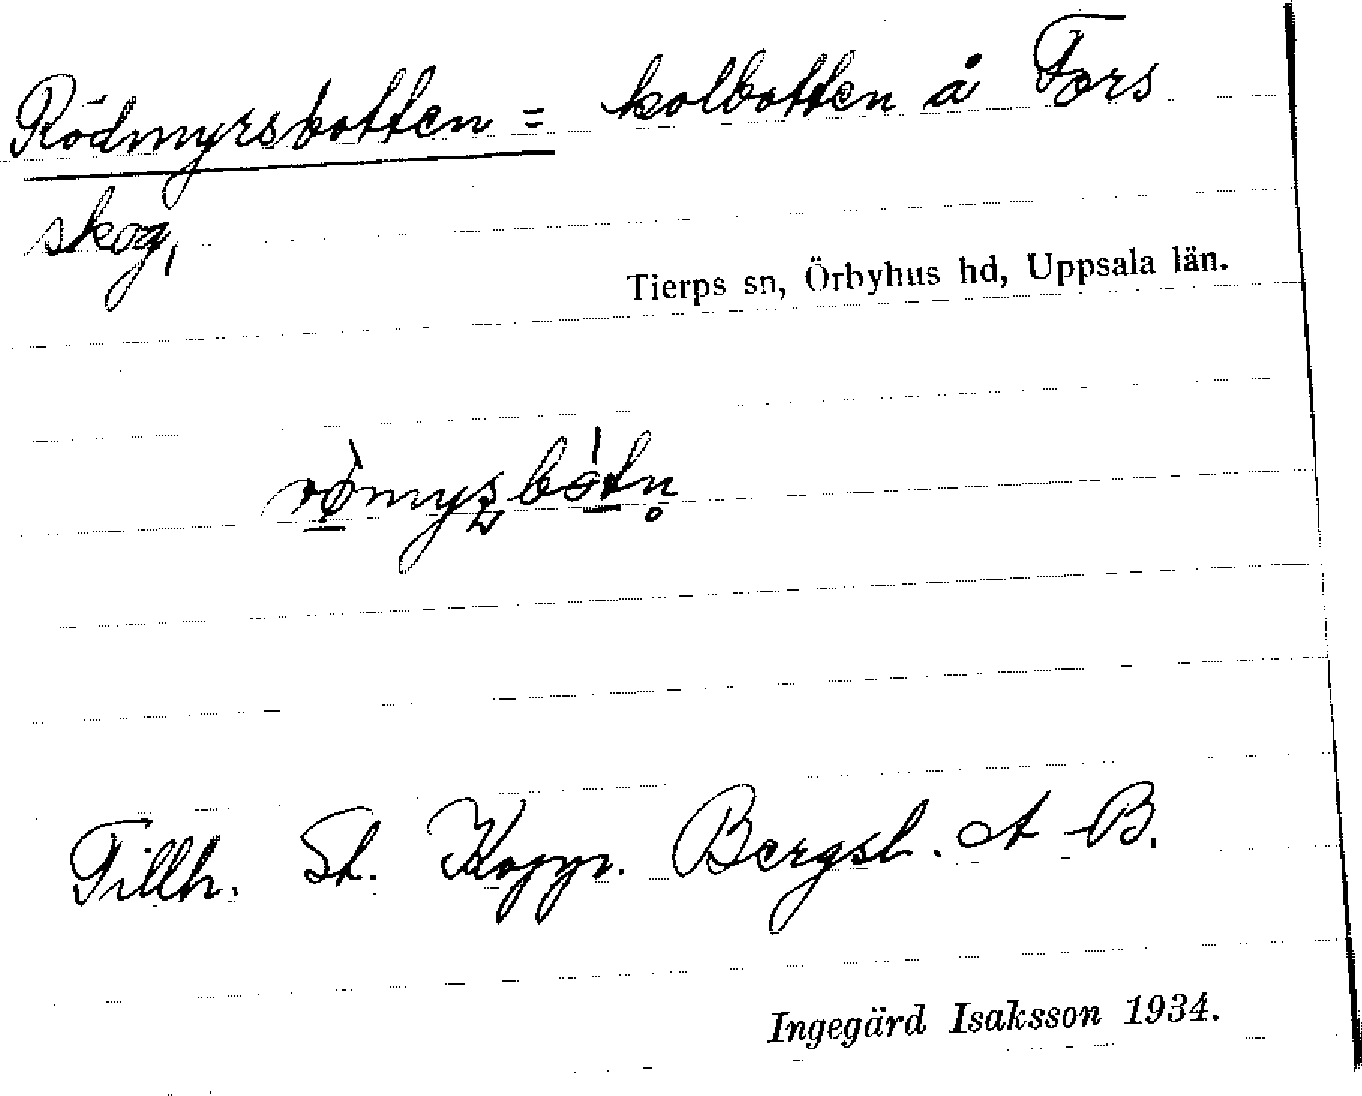 Rödmyrsbotten = kolbotten å Fors
skog,
Tierps sn, Örbyhus hd, Uppsala län.
Tillh. St. Kopp. Bergsl. A B.
Ingegärd Isaksson 1934.